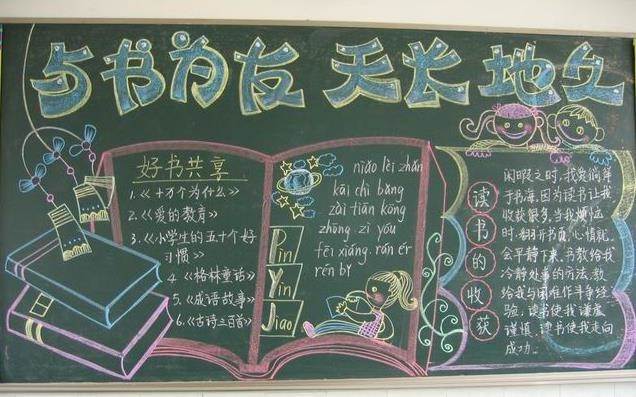 与书为友 天长地久
好书共享
1.《十万个为什么》
2.《爱的教育》
3.《小学生的五十个好
习惯》
4《格林童话》
5.《成语故事》
6.《古诗三百首》
niǎo lèi zhǎn
kāi chì bǎng
zài tiān kōng
zhōng. zì yóu
fēi xiáng. rán ér
rén by
Pin
Yin
Jiao
读书的收获
闲暇之时,我爱徜徉
于书海,因为读书让我
收获很多,当我烦恼
时.翻开书页,心情就
会平静下来,书教给我
冷静处事的方法,教
给我与困难作斗争经
验,读书使我谦虚
谨慎,读书使我走向
成功.